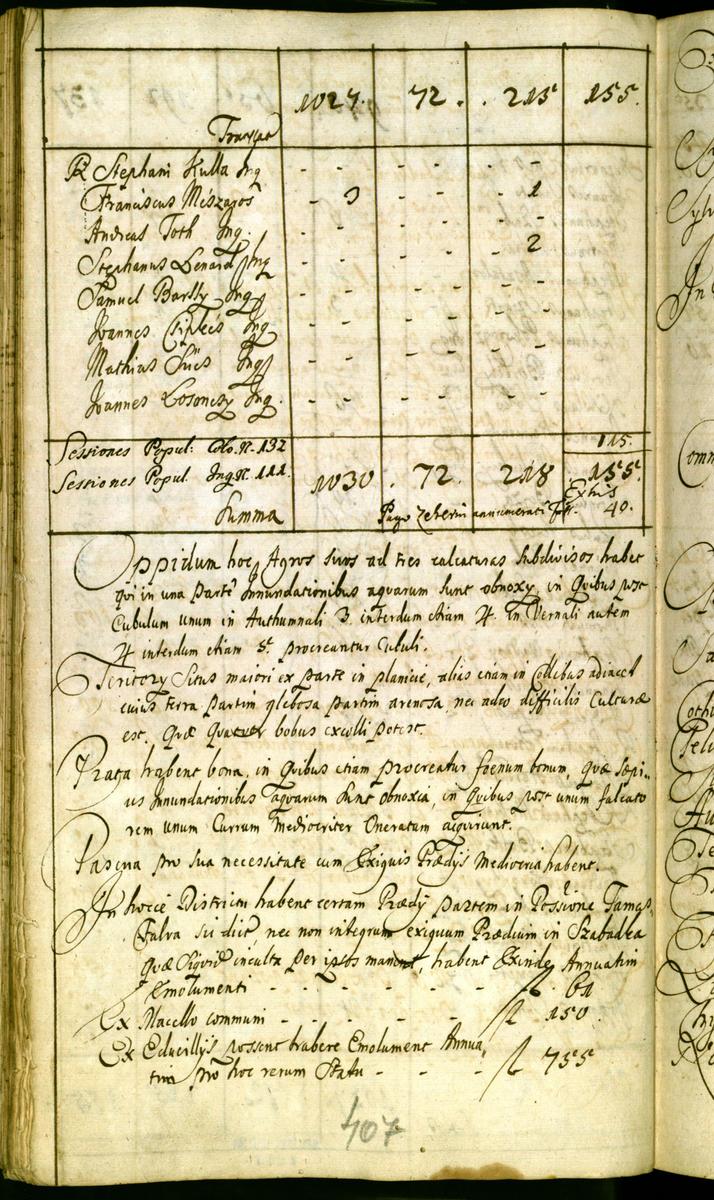 Transpt 1027. 72. 215 155.
R Stephani Kulla Inq - - - -
Franciscus Mészaros - 3 - - 1
Andreas Toth Inq. - - - -
Stephanus Lenard Inq - - - 2
Samuel Inq - - - -
Joannes Inq - - - -
Mathias Sües Inq - - - -
Joannes Losonczy Inq. - - - -
Sessiones Popul: Co. N. 132 115.
Sessiones Popul. Inq N. 111. 1030. 72. 218 155.
Ex his
Summa Pago annumerati 40.
Oppidum hoc Agros suos ad tres calcaturas subdivisos habet
qui in una parte Innundationibus aquarum sunt obnoxy, in Quibus post
Cubulum unum in Authumnali 3. interdum etiam 4. in Vernali autem
4 interdum etiam 5. procreantur Cubuli.
Teritory Situs maiori ex parte in planicie, alias etiam in Collibus adiacet
cuius terra partim glebosa partim arenosa, nec adeo difficilis Culturæ
est, Quæ Quatuor bobus excolli potest.
Prata habent bona, in Quibus etiam procreatur foenum bonum, quæ sæpi=
us Innundationibus aquarum sunt obnoxia, in Quibus post unum falcato
rem unum Currum mediocriter Oneratum acquirunt.
Pascua pro sua necessitate cum Exiguis Prædys mediocria habent.
In hocce Districtu habent certam Prædy partem in Possione Tamas
falva sic dict, nec non integrum exiguum Prædium in Szabadka
Quæ Siquid inculta per ipsos manent, habent Exinde Annuatim
Emolumenti - - - - - - fl. 61
Ex Macello communi - - - - - fl 150.
Ex Educillys possent habere Emolument Annua,
tim pro hoc rerum Statu - - - fl 755
407